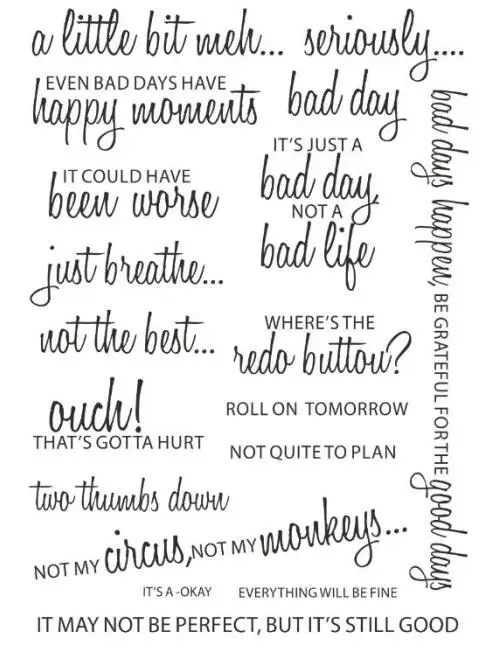 a little bit meh...
seriously....
EVEN BAD DAYS HAVE
happy moments
bad day
IT'S JUST A
bad day,
NOT A
bad life
IT COULD HAVE
been worse
just breathe...
not the best...
WHERE'S THE
redo button?
ouch!
THAT'S GOTTA HURT
ROLL ON TOMORROW
NOT QUITE TO PLAN
two thumbs down
NOT MY circus, NOT MY monkeys...
IT'S A -OKAY
EVERYTHING WILL BE FINE
IT MAY NOT BE PERFECT, BUT IT'S STILL GOOD
bad days happen, BE GRATEFUL FOR THE good days